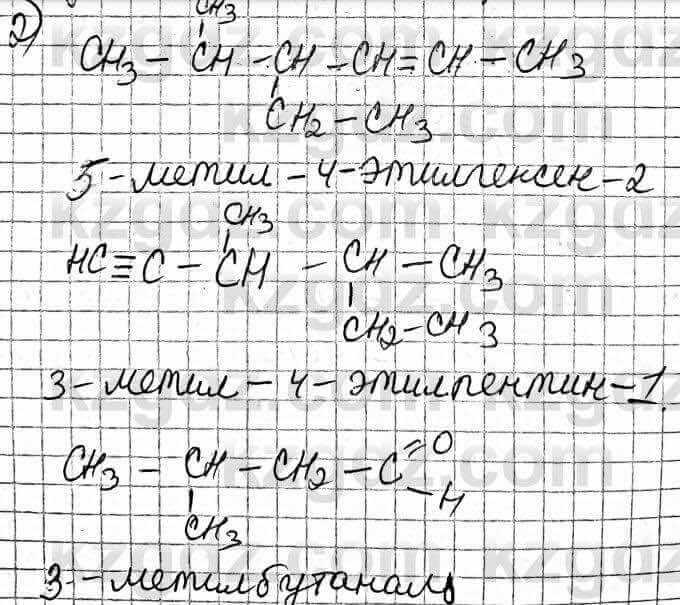 2)
CH3
CH3 - CH - CH - CH = CH - CH3
CH2 - CH3
5-метил-4-этилгексен-2
CH3
HC ≡ C - CH - CH - CH3
CH2 - CH3
3-метил-4-этилпентин-1.
CH3 - CH - CH2 - C = O
- H
CH3
3-метилбутаналь